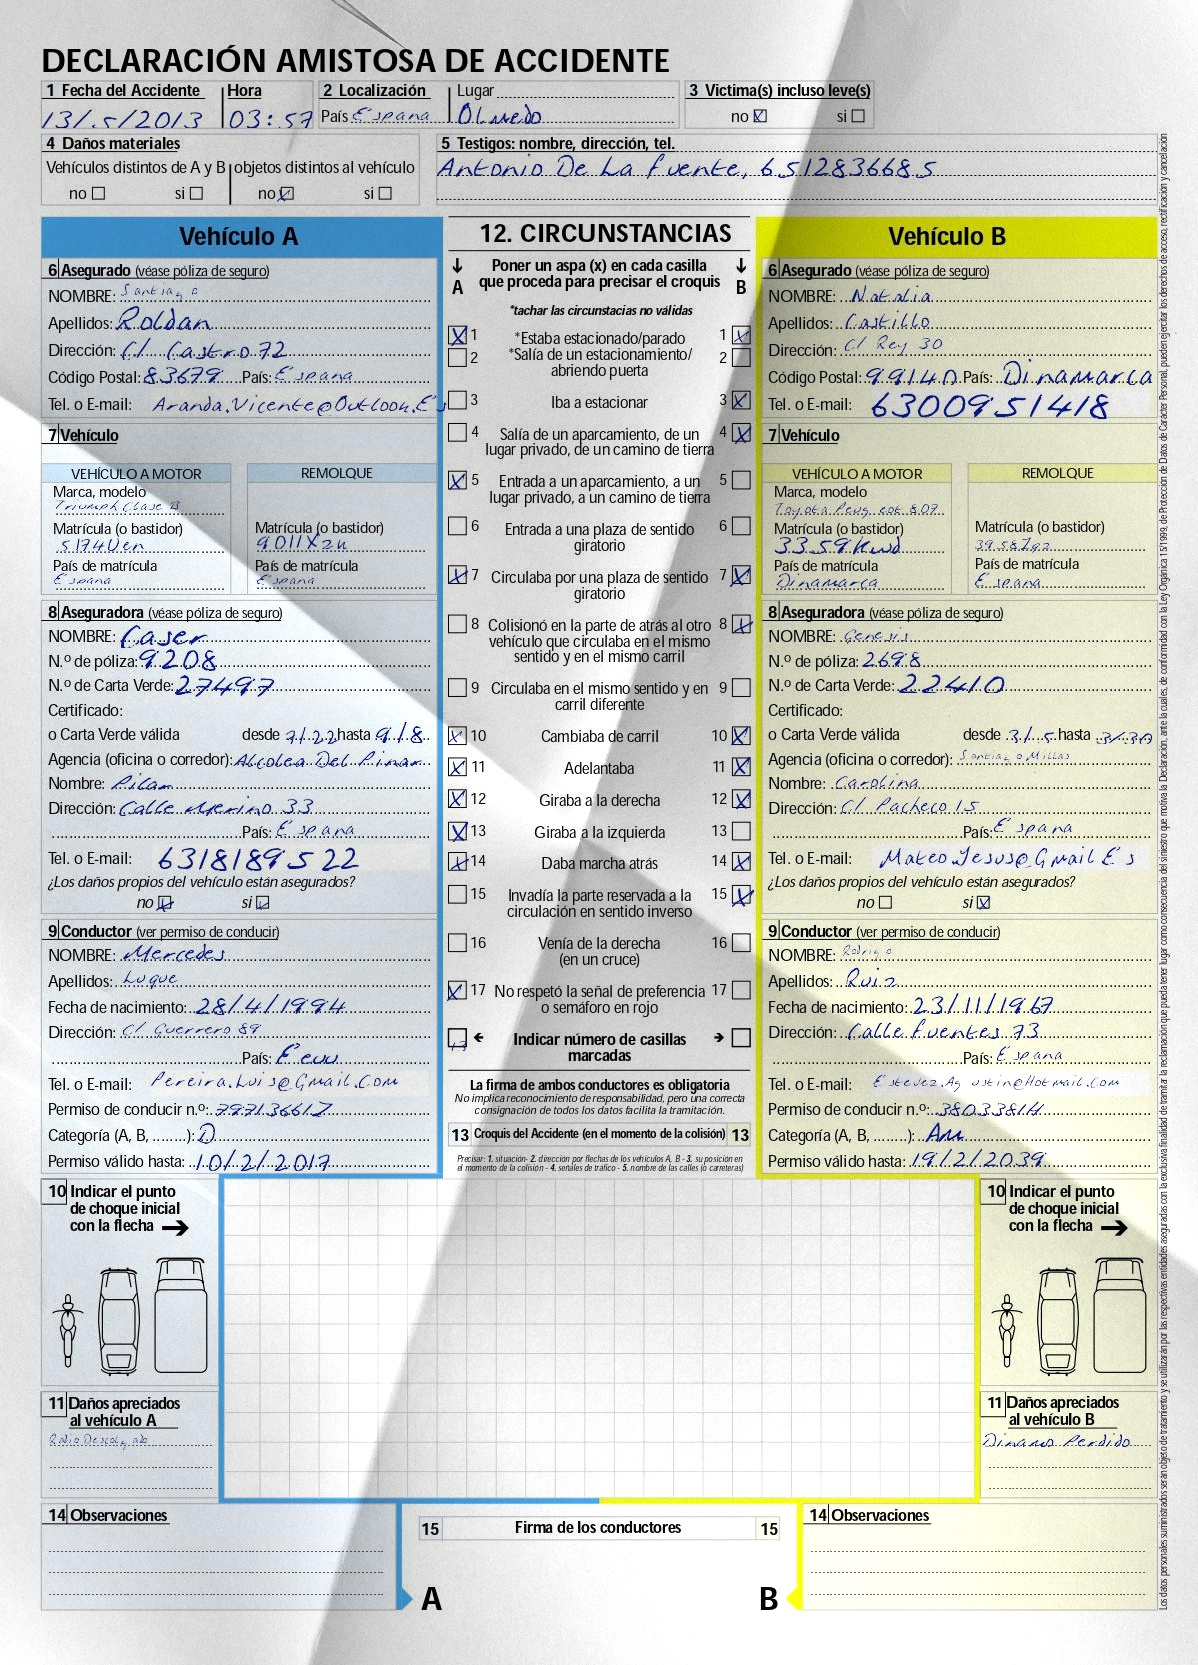 DECLARACIÓN AMISTOSA DE ACCIDENTE
1 Fecha del Accidente Hora 2 Localización Lugar 3 Victima(s) incluso leve(s)
13/5/2013 03:57 País Espana Olmedo no X si
4 Daños materiales
Vehículos distintos de A y B objetos distintos al vehículo
no si no X si
5 Testigos: nombre, dirección, tel.
Antonio De La Fuente, 6512836685
Vehículo A
6 Asegurado (véase póliza de seguro)
NOMBRE: Santiago
Apellidos: Roldan
Dirección: C/ Castro 72
Código Postal: 83679 País: Espana
Tel. o E-mail: Aranda.Vicente@Outlook.Es
7 Vehículo
VEHÍCULO A MOTOR REMOLQUE
Marca, modelo
Triumph Clase B
Matrícula (o bastidor) Matrícula (o bastidor)
5174Uen 9011Xzn
País de matrícula País de matrícula
Espana Espana
8 Aseguradora (véase póliza de seguro)
NOMBRE: Caser
N.º de póliza: 9208
N.º de Carta Verde: 27497
Certificado:
o Carta Verde válida desde 7/22 hasta 9/8
Agencia (oficina o corredor): Alcolea Del Pinar
Nombre: Pilar
Dirección: Calle Merino 33
País: Espana
Tel. o E-mail: 6318189522
¿Los daños propios del vehículo están asegurados?
no X si X
9 Conductor (ver permiso de conducir)
NOMBRE: Mercedes
Apellidos: Luque
Fecha de nacimiento: 28/4/1994
Dirección: C/ Guerrero 89
País: Eeuu
Tel. o E-mail: Pereira.Luis@Gmail.Com
Permiso de conducir n.º: 79713661Z
Categoría (A, B, ........): D
Permiso válido hasta: 10/2/2017
12. CIRCUNSTANCIAS
A Poner un aspa (x) en cada casilla que proceda para precisar el croquis B
*tachar las circunstacias no válidas
X 1 *Estaba estacionado/parado 1 X
2 *Salía de un estacionamiento/ 2
abriendo puerta
3 Iba a estacionar 3 X
4 Salía de un aparcamiento, de un 4 X
lugar privado, de un camino de tierra
X 5 Entrada a un aparcamiento, a un 5
lugar privado, a un camino de tierra
6 Entrada a una plaza de sentido 6
giratorio
X 7 Circulaba por una plaza de sentido 7 X
giratorio
8 Colisionó en la parte de atrás al otro 8 X
vehículo que circulaba en el mismo
sentido y en el mismo carril
9 Circulaba en el mismo sentido y en 9
carril diferente
X 10 Cambiaba de carril 10 X
X 11 Adelantaba 11 X
X 12 Giraba a la derecha 12 X
X 13 Giraba a la izquierda 13
X 14 Daba marcha atrás 14 X
15 Invadía la parte reservada a la 15 X
circulación en sentido inverso
16 Venía de la derecha 16
(en un cruce)
X 17 No respetó la señal de preferencia 17
o semáforo en rojo
13 Indicar número de casillas
marcadas
La firma de ambos conductores es obligatoria
No implica reconocimiento de responsabilidad, pero una correcta
consignación de todos los datos facilita la tramitación.
13 Croquis del Accidente (en el momento de la colisión) 13
Precisar: 1. situación- 2. dirección por flechas de los vehículos A, B - 3. su posición en
el momento de la colisión - 4. señales de tráfico - 5. nombre de las calles (o carreteras)
Vehículo B
6 Asegurado (véase póliza de seguro)
NOMBRE: Natalia
Apellidos: Castillo
Dirección: C/ Rey 30
Código Postal: 99140 País: Dinamarca
Tel. o E-mail: 6300951418
7 Vehículo
VEHÍCULO A MOTOR REMOLQUE
Marca, modelo
Toyota Peugeot 807
Matrícula (o bastidor) Matrícula (o bastidor)
3359Kwd 3958Zgz
País de matrícula País de matrícula
Dinamarca Espana
8 Aseguradora (véase póliza de seguro)
NOMBRE: Genesis
N.º de póliza: 2698
N.º de Carta Verde: 22410
Certificado:
o Carta Verde válida desde 3/5 hasta 3/30
Agencia (oficina o corredor): Santiago Millas
Nombre: Carolina
Dirección: C/ Pacheco 15
País: Espana
Tel. o E-mail: MateoJesus@Gmail Es
¿Los daños propios del vehículo están asegurados?
no si X
9 Conductor (ver permiso de conducir)
NOMBRE: Rodrigo
Apellidos: Ruiz
Fecha de nacimiento: 23/11/1967
Dirección: Calle Fuentes 73
País: Espana
Tel. o E-mail: Estevez.Agustin@Hotmail.Com
Permiso de conducir n.º: 3803381H
Categoría (A, B, ........): Am
Permiso válido hasta: 19/2/2039
10 Indicar el punto
de choque inicial
con la flecha
11 Daños apreciados
al vehículo A
Radio Descolgado
10 Indicar el punto
de choque inicial
con la flecha
11 Daños apreciados
al vehículo B
Dinamo Perdido
14 Observaciones
15 Firma de los conductores 15
A B
14 Observaciones
Los datos personales suministrados serán objeto de tratamiento y se utilizarán por las respectivas entidades aseguradas con la exclusiva finalidad de tramitar la reclamación que pueda tener lugar como consecuencia del siniestro que motiva la Declaración, ante la cuales, de conformidad con la Ley Orgánica 15/1999, de Protección de Datos de Carácter Personal, pueden ejercitar los derechos de acceso, rectificación y cancelación